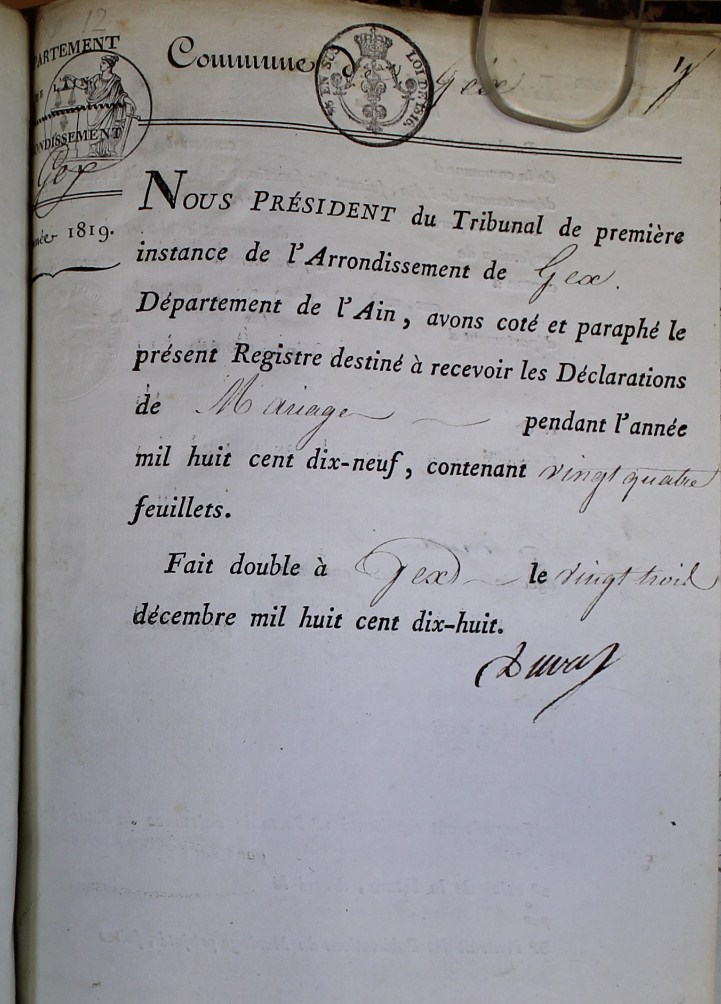 12
PARTEMENT
DE L'AIN
ONDISSEMENT
Gex
née 1819.
Commune de Gex
EN SUS
LOI DE 1816
Nous Président du Tribunal de première
instance de l'Arrondissement de Gex.
Département de l'Ain, avons coté et paraphé le
présent Registre destiné à recevoir les Déclarations
de Mariage pendant l'année
mil huit cent dix-neuf, contenant vingt quatre
feuillets.
Fait double à Gex le vingt trois
décembre mil huit cent dix-huit.